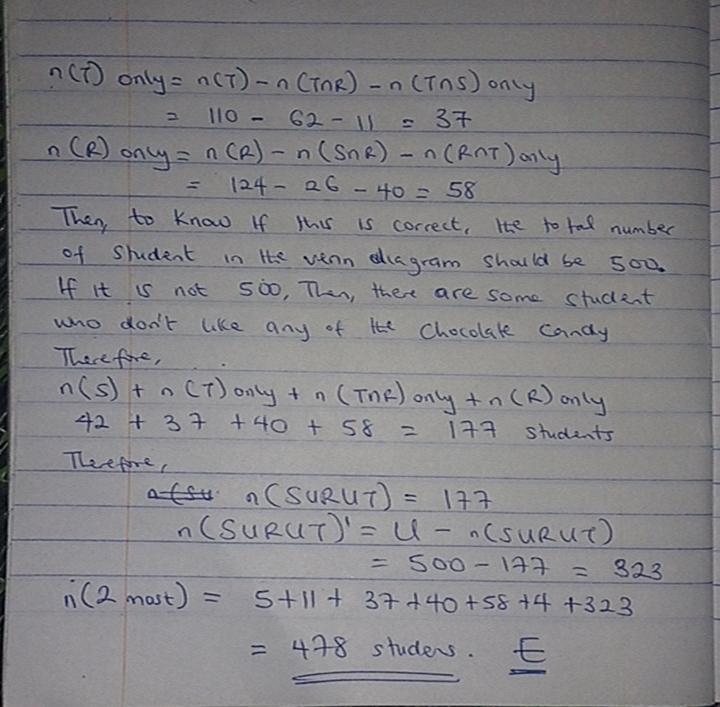 n(T) only = n(T) - n(TnR) - n(TnS) only
= 110 - 62 - 11 = 37
n(R) only = n(R) - n(SnR) - n(RnT) only
= 124 - 26 - 40 = 58
Then, to know if this is correct, the total number
of student in the venn diagram should be 500.
If it is not 500, Then, there are some student
who don't like any of the chocolate candy
Therefore,
n(S) + n(T) only + n(TnR) only + n(R) only
42 + 37 + 40 + 58 = 177 students
Therefore,
n(SURUT) = 177
n(SURUT)' = U - n(SURUT)
= 500 - 177 = 323
n(2 most) = 5+11+ 37+40+58+4+323
= 478 studens. E